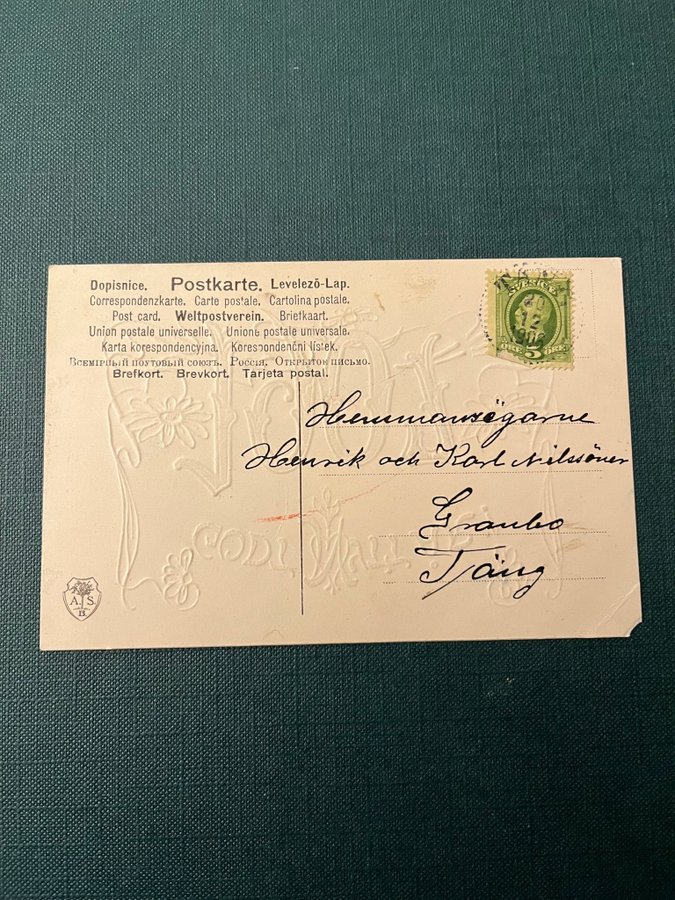 Dopisnice. Postkarte. Levelező-Lap.
Correspondenzkarte. Carte postale. Cartolina postale.
Post card. Weltpostverein. Briefkaart.
Union postale universelle. Unione postale universale.
Karta korespondencyjna. Korespondenčni listek.
Всемірный почтовый союзъ. Россія. Открытое письмо.
Brefkort. Brevkort. Tarjeta postal.
SVERIGE
12
ÖRE 5 ÖRE
Hemmansägarne
Henrik och Karl Nilssöner
Granbo
Täng
A. S.
B